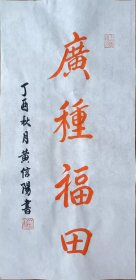 廣種福田
丁酉秋月黄信陽書